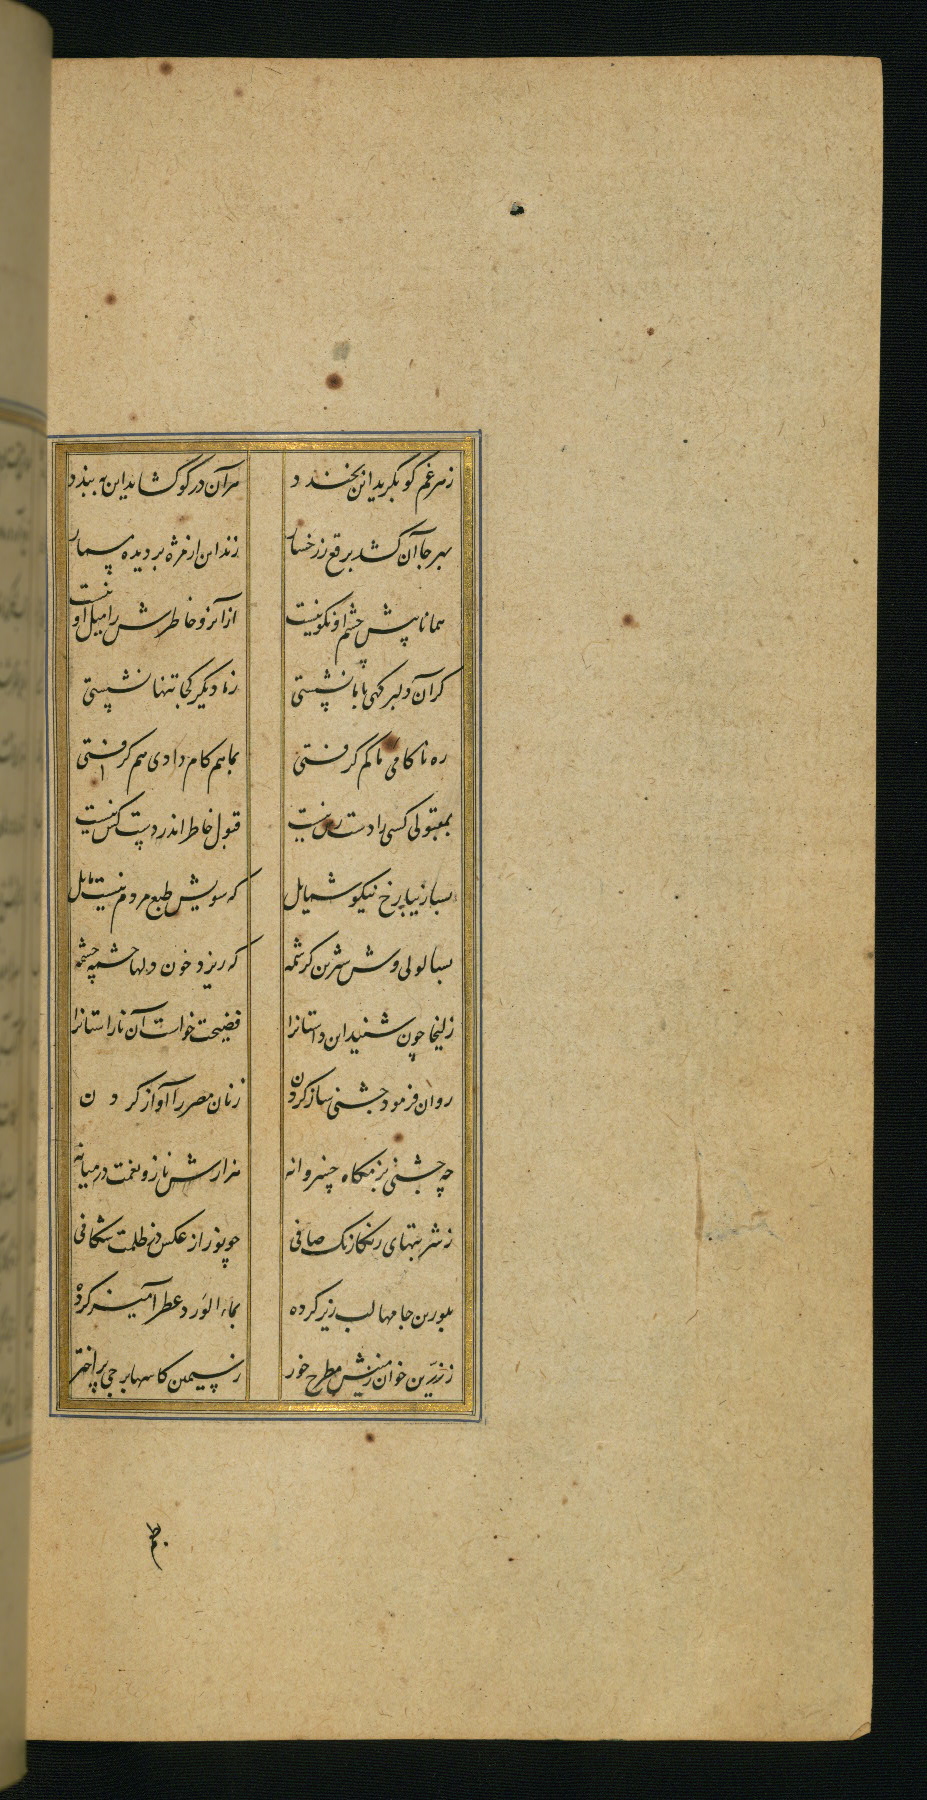 ز هر غم کو بگرید این بخندد هر آن در کو گشاید این ببندد
بهر جا آن کشد برقع ز رخسار زند این از مژه بر دیده مسمار
همانا پیش چشم او نکو نیست از آنرو خاطرش را میل او نیست
گر آن دلبر گهی با ما نشستی ز ما دیگر کجا تنها نشستی
ره ناکامی ما کم گرفتی بما هم کام دادی هم گرفتی
بمقبولی کسی را دست رس نیست قبول خاطر اندر دست کس نیست
بسا زیبا رخ نیکو شمایل که سویش طبع مردم نیست مایل
بسا لولی وش شیرین کرشمه که ریزد خون دلها چشمه چشمه
زلیخا چون شنید این داستانرا فضیحت خواست آن ناراستانرا
روان فرمود جشنی ساز کردن زنان مصر را آواز کردن
چه جشنی بزمگاه خسروانه هزارش ناز و نعمت در میانه
ز شربتهای رنگارنگ صافی چو نور از عکس در ظلمت شکافی
بلورین جامها لب ریز کرده بماء الورد عطر آمیز کرده
ز زرین خوان زمینش مطرح خور ز سیمین کاسها برجی پر اختر